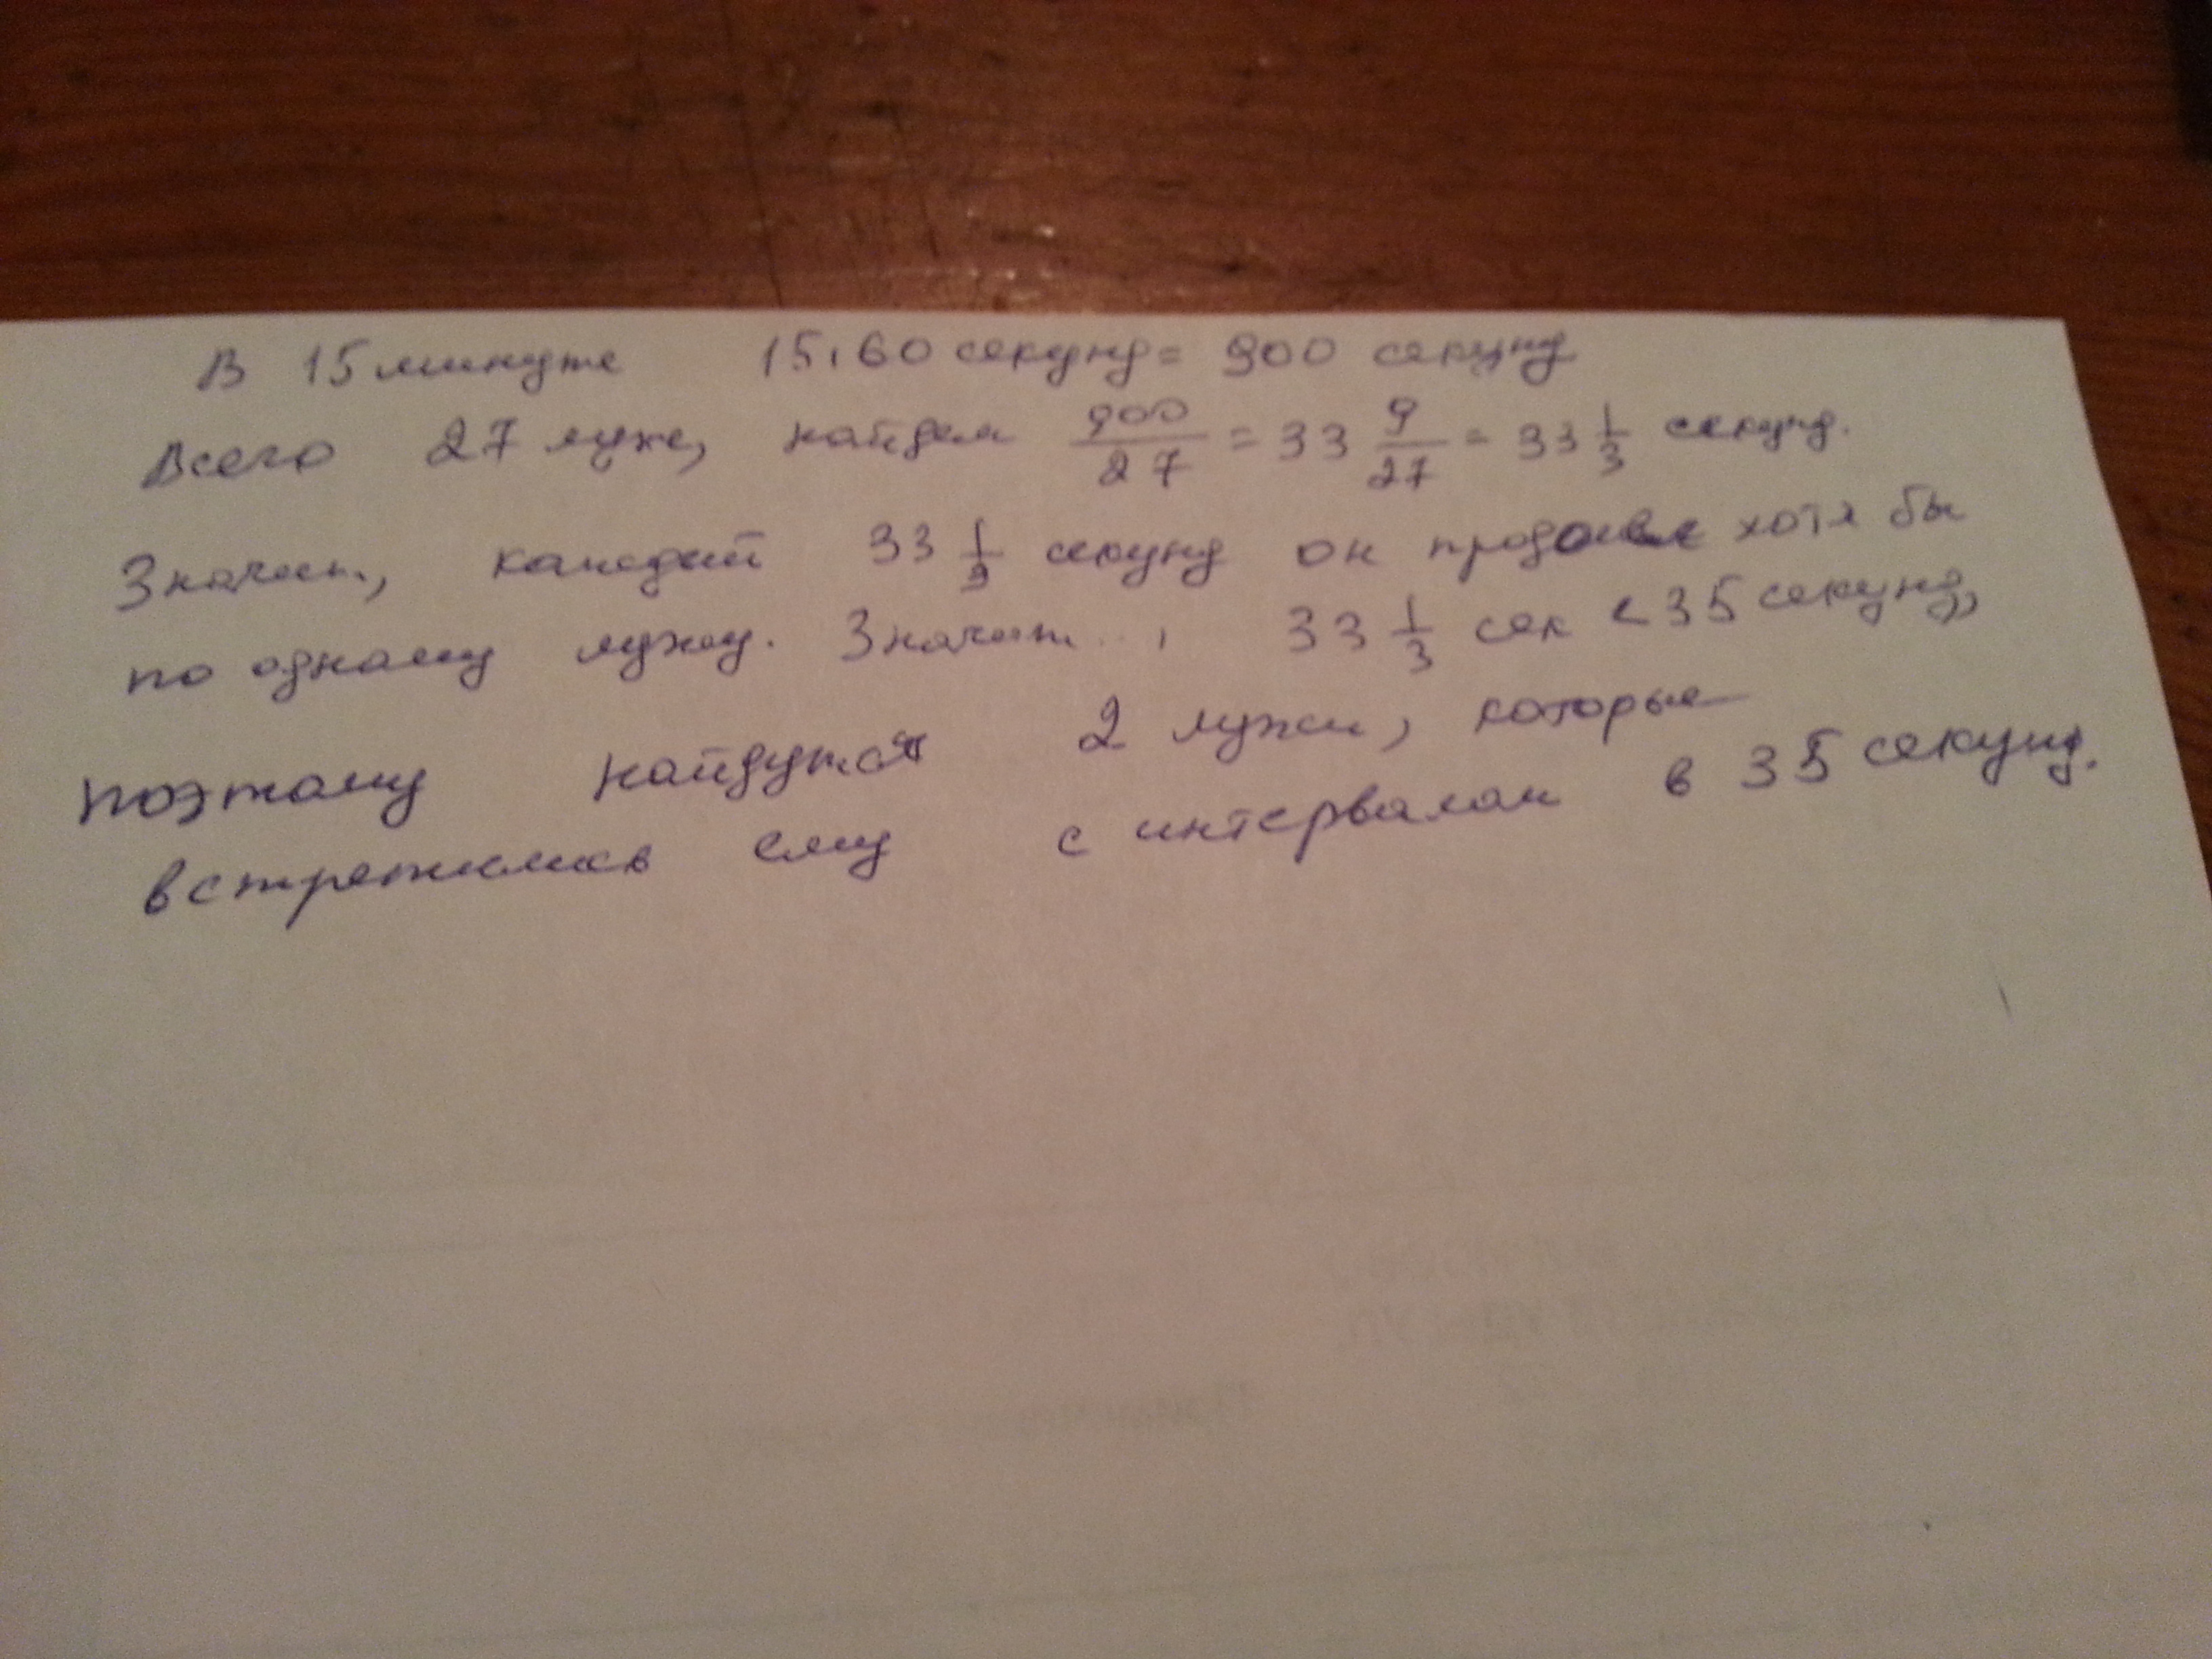 В 15 минуте 15.60 секунд = 900 секунд
Всего 27 луж, найдем 900/27 = 33 9/27 = 33 1/3 секунд.
Значит, каждый 33 1/3 секунд он хотя бы
по одному лужу. Значит, 33 1/3 сек < 35 секунд,
Поэтому найдутся 2 лужи, которые
встретились ему с интервалом в 35 секунд.